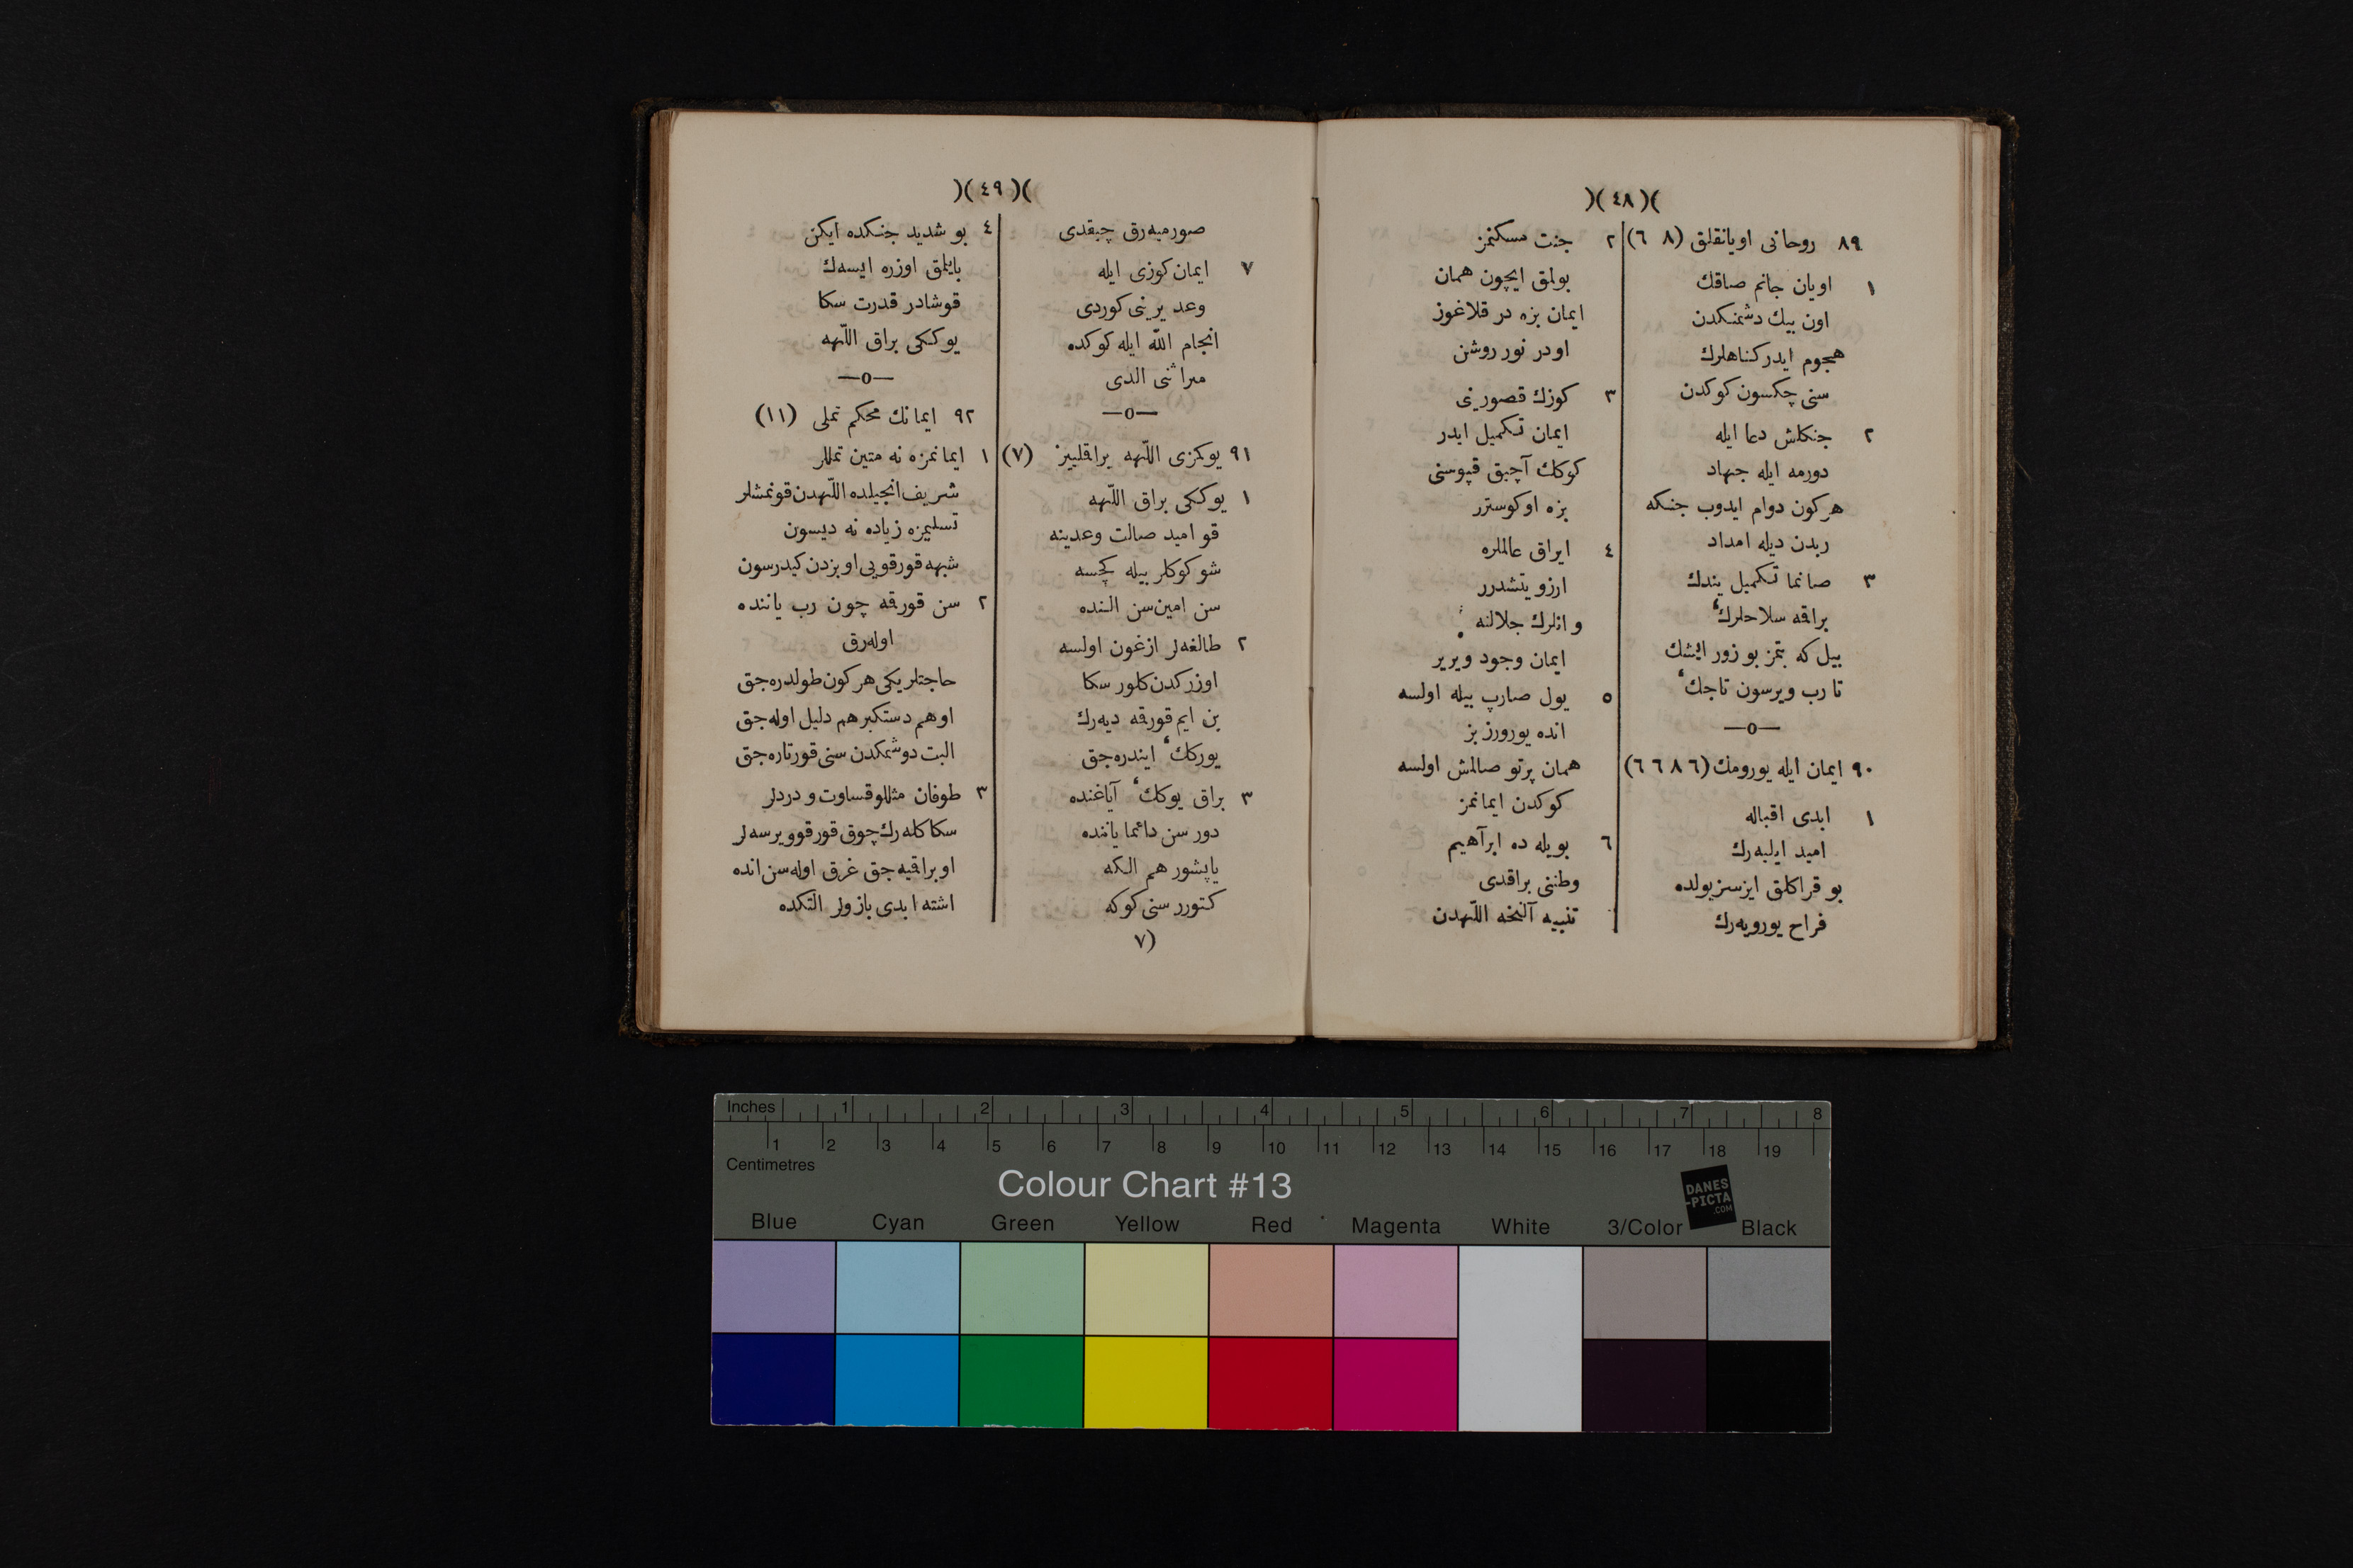 )(٤٨)(
٨٩ روحانی اویانقلق (٨ ٦)
١ اویان جانم صاقك
اون بیك دشمنكدن
هجوم ایدر كناهلرك
سنی چكسون كوكدن
٢ جنكلش دعا ایله
دورمه ایله جهاد
هركون دوام ایدوب جنكه
ربدن دیله امداد
٣ صانما تكمیل یندك
براقه سلاحلرك
بیل كه بتمز بو زور ایشك
تا رب ویرسون تاجك
—o—
٩٠ ایمان ایله یورومك (٦ ٨ ٦ ٦)
١ ابدی اقباله
امید ایلیه‌رك
بو قراكلق ایزسز یولده
فراح یورویه‌رك
٢ جنت مسكنمز
بولمق ایچون همان
ایمان بزه در قلاغوز
اودر نور روشن
٣ كوزك قصورینی
ایمان تكمیل ایدر
كوكك آچیق قپوسنی
بزه او كوسترر
٤ ایراق عالملره
ارزو یتشدرر
و انلرك جلالنه
ایمان وجود ویریر
٥ یول صارپ بیله اولسه
انده یورورز بز
همان پرتو صالمش اولسه
كوكدن ایمانمز
٦ بویله ده ابرآهیم
وطننی براقدی
تنبیه آلنجه اللّهدن
)(٤٩)(
صورمیه‌رق چیقدی
٧ ایمان كوزی ایله
وعد یرینی كوردی
انجام اللّه ایله كوكده
میراثنی الدی
—o—
٩١ یوكمزی اللّهه براقلییز (٧)
١ یوككی براق اللّهه
قو امید صالت وعدینه
شو كوكلر بیله كچسه
سن امین‌سن النده
٢ طالغه‌لر ازغون اولسه
اوزركدن كلور سكا
بن ایم قورقه دیه‌رك
یوركك ایندره‌جق
٣ براق یوكك آیاغنده
دور سن دائما یاننده
یاپشور هم الكه
كتورر سنی كوكه
٧)
٤ بو شدید جنكده ایكن
بایلمق اوزره ایسه‌ك
قوشادر قدرت سكا
یوككی براق اللّهه
—o—
٩٢ ایمانك محكم تملی (١١)
١ ایمانمزه نه متین تمللر
شریف انجیلده اللّهدن قونمشلر
تسلیمزه زیاده نه دیسون
شبهه قورقویی او بزدن كیدرسون
٢ سن قورقه چون رب یاننده
اوله‌رق
حاجتلریكی هركون طولدره‌جق
اوهم دستكیر هم دلیل اوله‌جق
البت دوشمكدن سنی قورتاره‌جق
٣ طوفان مثللو قساوت و دردلر
سكا كله‌رك چوق قورقو ویرسه‌لر
او براقیه‌جق غرق اوله‌سن انده
اشته ابدی بازولر التكده
Inches 1 2 3 4 5 6 7 8
1 2 3 4 5 6 7 8 9 10 11 12 13 14 15 16 17 18 19
Centimetres
Colour Chart #13
DANES
-PICTA
.COM
Blue Cyan Green Yellow Red Magenta White 3/Color Black